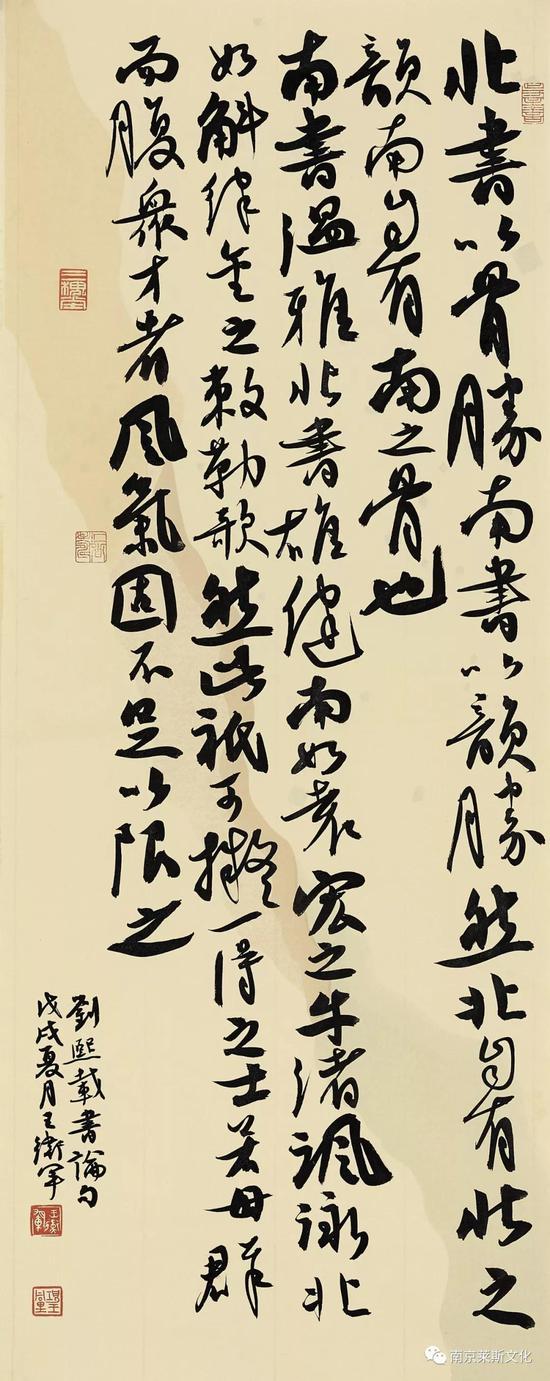 北書以骨勝南書以韻勝然北自有北之
韻南自有南之骨也
南書溫雅北書雄健南如袁宏之牛渚諷詠北
如斛律金之敕勒歌然此祇可擬一得之士若母群
而腹衆才者風氣固不足以限之
劉熙載書論句
戊戌夏月王衛軍
南京莱斯文化